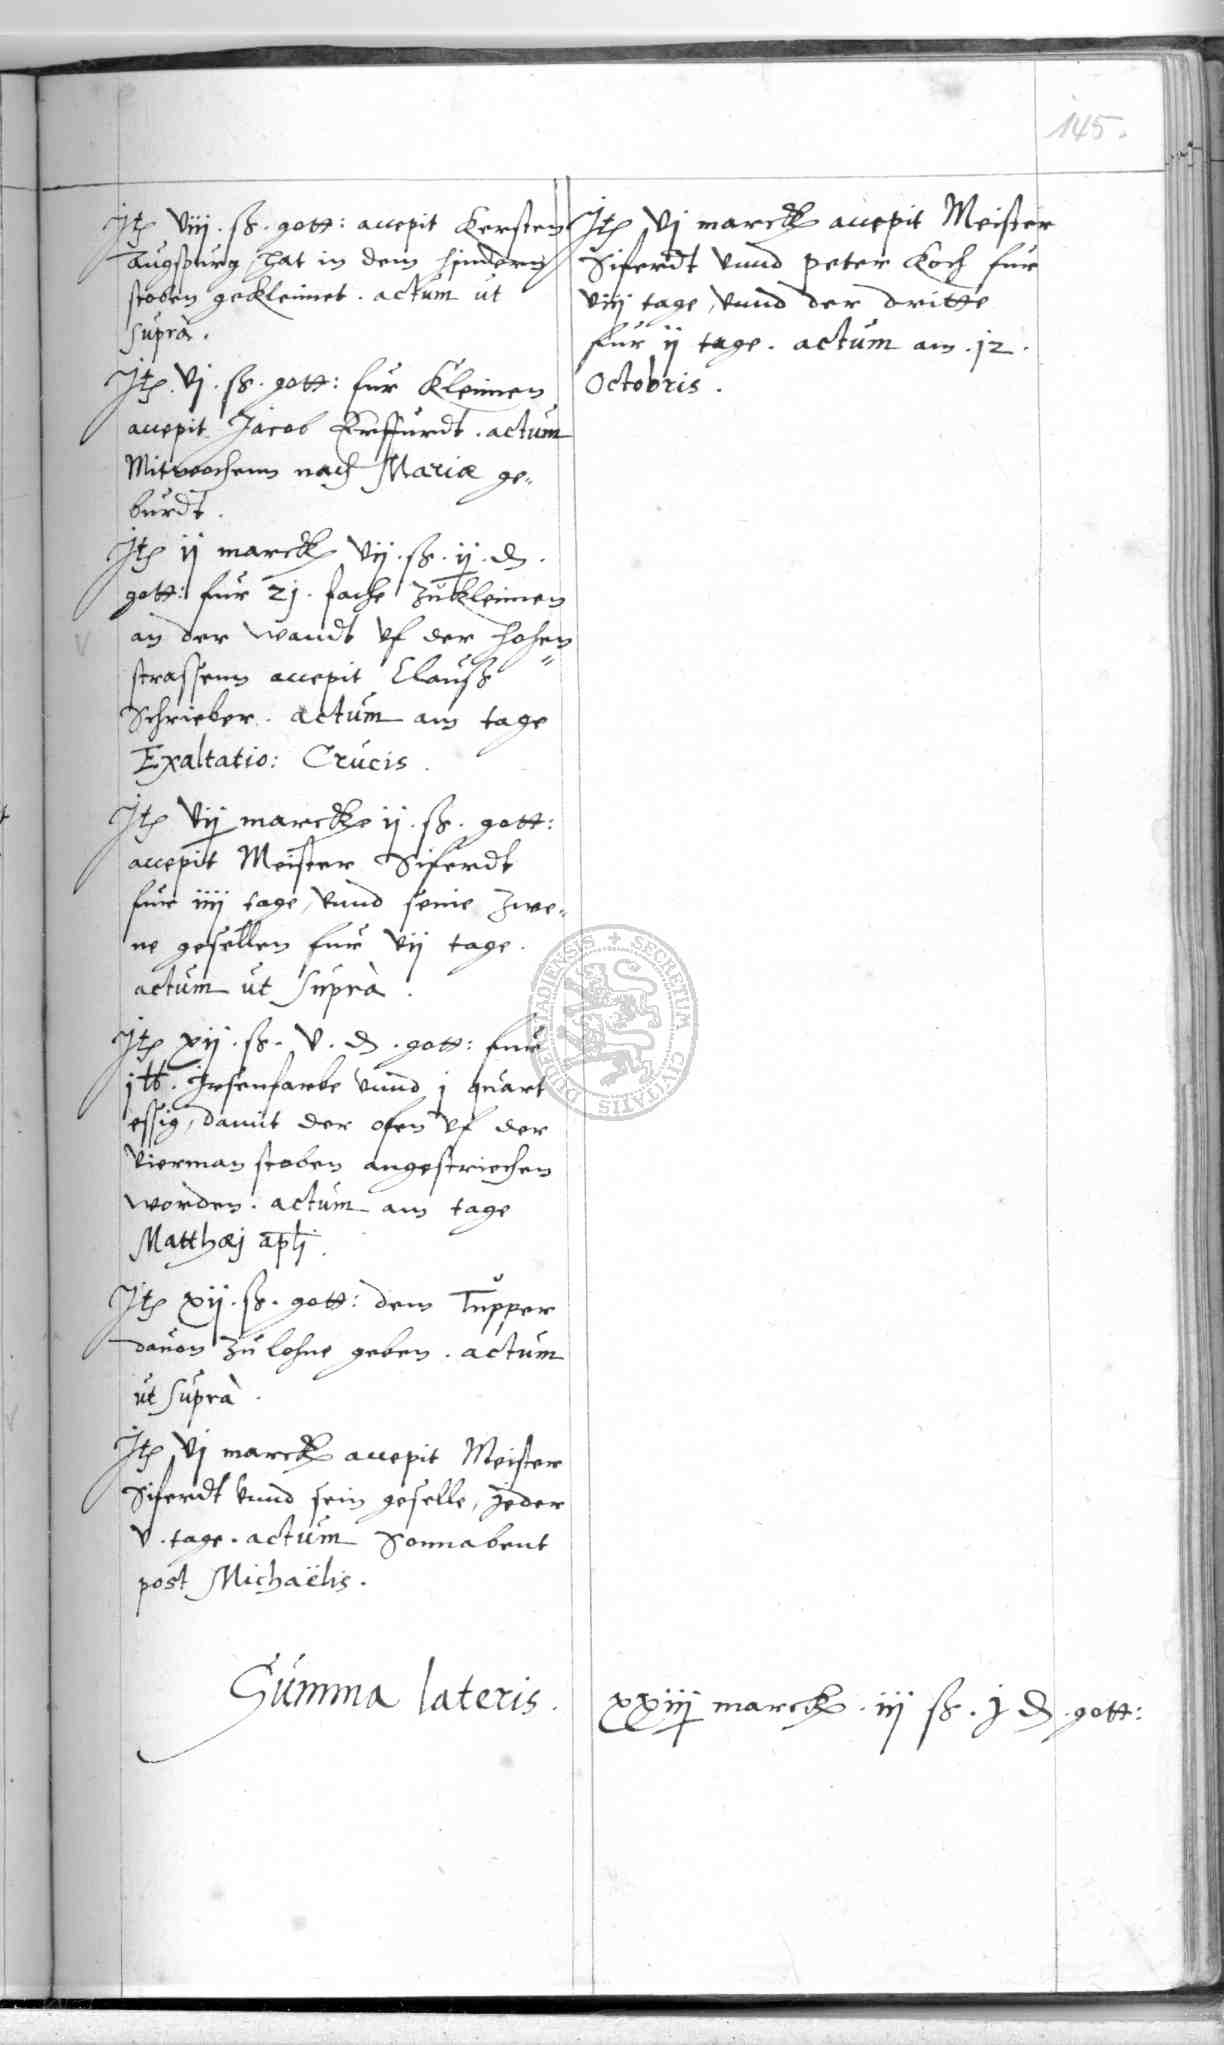 145.
Jtem viij . ß . gott: accepit Kersten
Augspurg, hat in dem hindern
stoben gekleimet . actum ut
suprà .
Jtem . vj . ß . gott: fur Kleimen
accepit Jacob Erffurdt . actum
Mitwochenn nach Mariæ ge„
burdt .
Jtem ij marck vij . ß . ij . d .
gott: fur 2j . fache zu kleimen
an der wandt vf der hohen„
strassenn accepit Clauß
Schrieber . actum am tage
Exaltatio: Crucis .
Jtem vij marcke ij . ß . gott:
accepit Meister Siferdt
fur iiij tage, vnnd seine zwe„
ne gesellen fur vij tage .
actum ut suprà .
Jtem xij . ß . v . d . gott: fur
j lb . Jsenfarbe vnnd j quart
essig, damit der ofen vf der
vierman stoben angestrichen
worden . actum am tage
Matthæj apli .
Jtem xij . ß . gott: dem Tüpper
dauon zu lohne geben . actum
ut suprà .
Jtem vj marck accepit Meister
Siferdt vnnd sein geselle, jeder
v . tage . actum Sonnabent
post Michaëlis .
Jtem vj marck accepit Meister
Siferdt vnnd peter Koch fur
viij tage, vnnd der dritte
fur ij tage . actum am . j2 .
Octobris .
Summa lateris . xxiiij marck . iij ß . j d . gott:
SECRETUM CIVITATIS DUDERSTADIENSIS